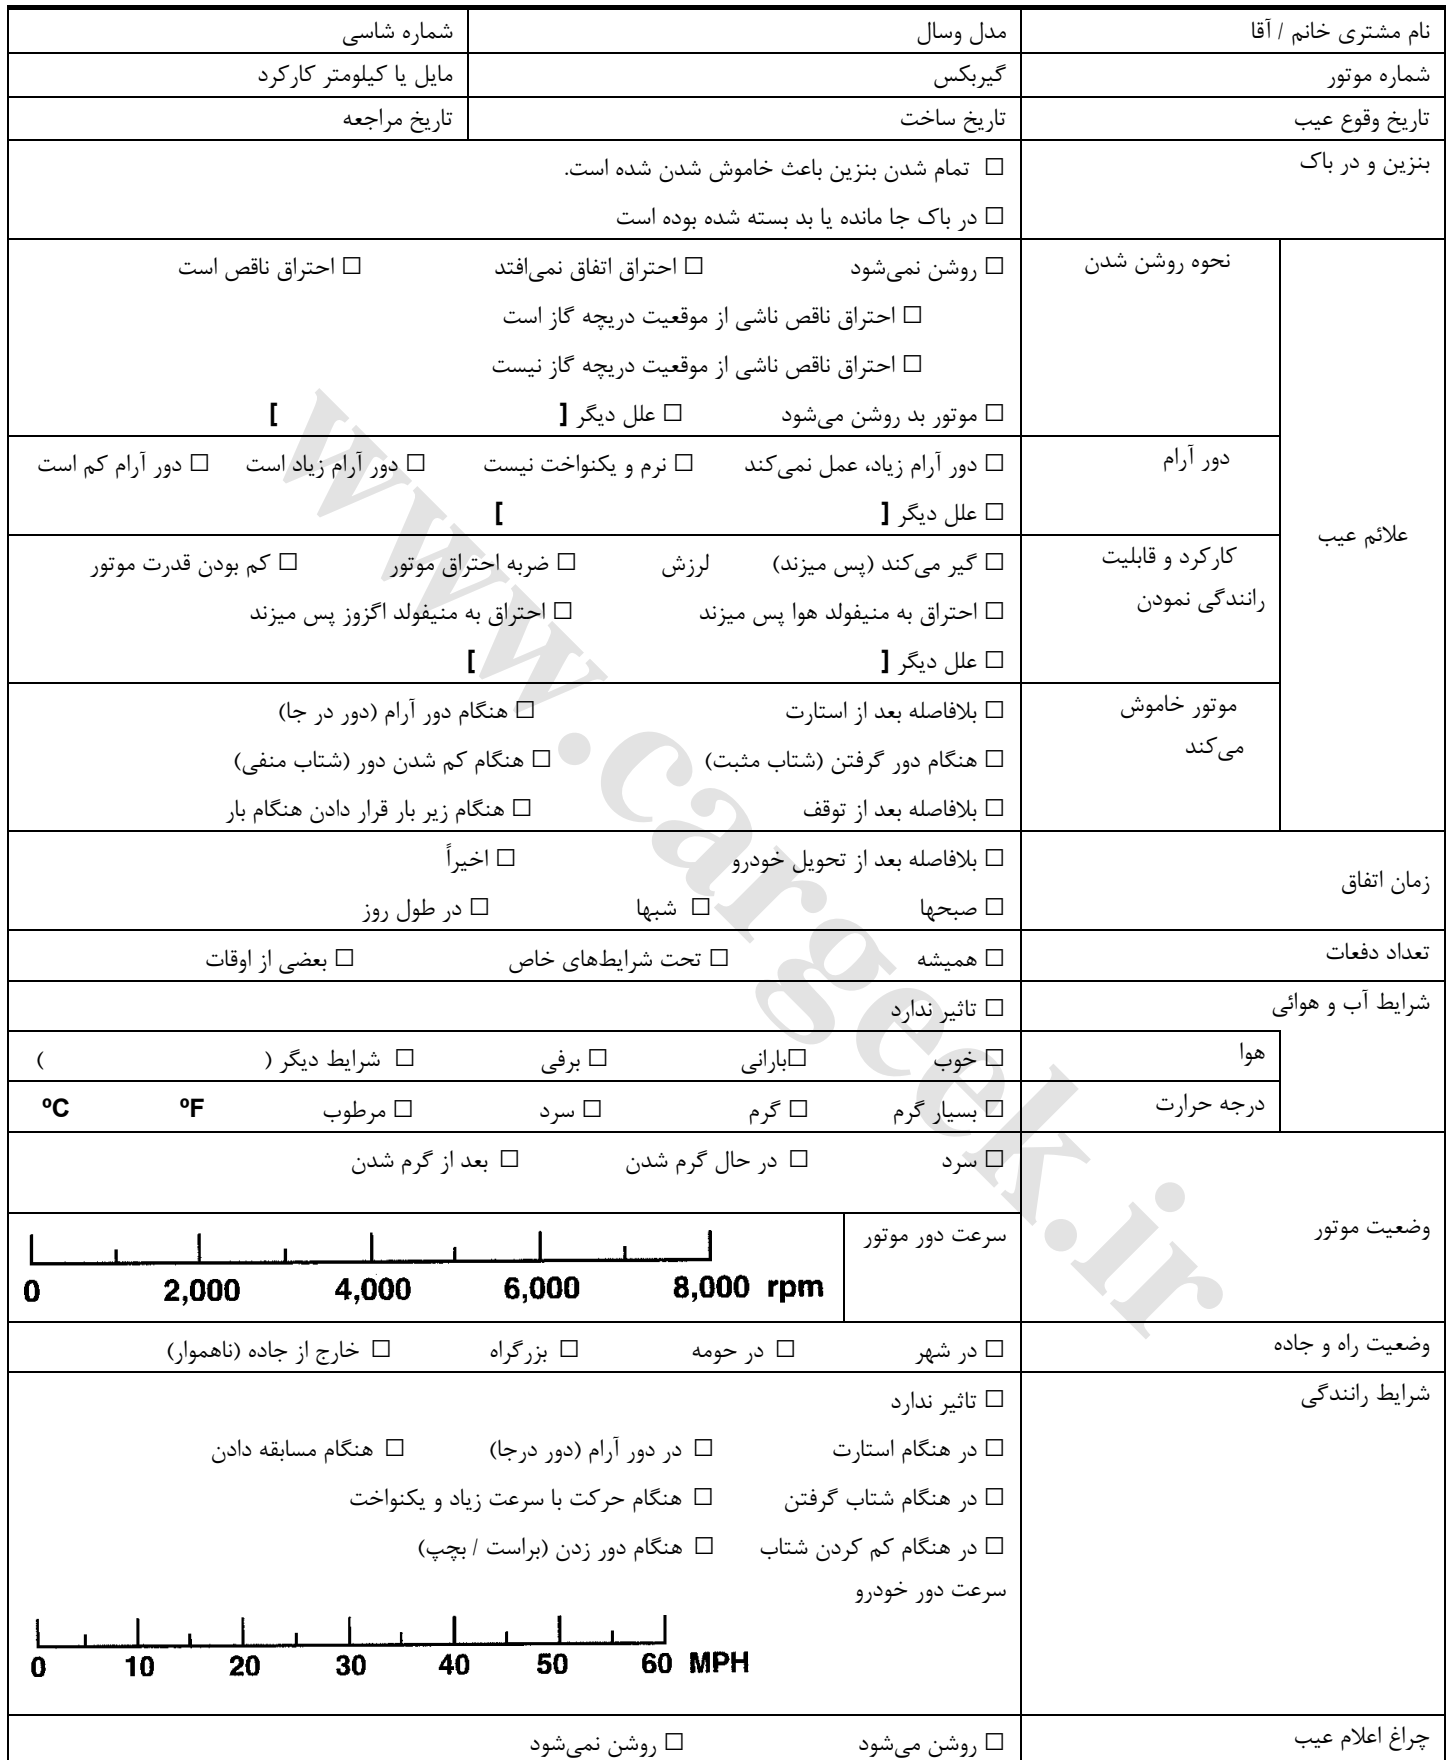 نام مشتری خانم / آقا	مدل وسال	شماره شاسی
شماره موتور	گیربکس	مایل یا کیلومتر کارکرد
تاریخ وقوع عیب	تاریخ ساخت	تاریخ مراجعه
بنزین و در باک	□ تمام شدن بنزین باعث خاموش شدن شده است.
□ در باک جا مانده یا بد بسته شده بوده است
علائم عیب
نحوه روشن شدن	□ روشن نمی‌شود	□ احتراق اتفاق نمی‌افتد	□ احتراق ناقص است
□ احتراق ناقص ناشی از موقعیت دریچه گاز است
□ احتراق ناقص ناشی از موقعیت دریچه گاز نیست
□ موتور بد روشن می‌شود	□ علل دیگر [ ]
دور آرام	□ دور آرام زیاد، عمل نمی‌کند	□ نرم و یکنواخت نیست	□ دور آرام زیاد است	□ دور آرام کم است
□ علل دیگر [ ]
کارکرد و قابلیت	□ گیر می‌کند (پس میزند)	لرزش	□ ضربه احتراق موتور	□ کم بودن قدرت موتور
رانندگی نمودن	□ احتراق به منیفولد هوا پس میزند	□ احتراق به منیفولد اگزوز پس میزند
□ علل دیگر [ ]
موتور خاموش	□ بلافاصله بعد از استارت	□ هنگام دور آرام (دور در جا)
می‌کند	□ هنگام دور گرفتن (شتاب مثبت)	□ هنگام کم شدن دور (شتاب منفی)
□ بلافاصله بعد از توقف	□ هنگام زیر بار قرار دادن هنگام بار
زمان اتفاق	□ بلافاصله بعد از تحویل خودرو	□ اخیراً
□ صبحها	□ شبها	□ در طول روز
تعداد دفعات	□ همیشه	□ تحت شرایط‌های خاص	□ بعضی از اوقات
شرایط آب و هوائی	□ تاثیر ندارد
هوا	□ خوب	□بارانی	□ برفی	□ شرایط دیگر ( )
درجه حرارت	□ بسیار گرم	□ گرم	□ سرد	□ مرطوب	ºF	ºC
وضعیت موتور	□ سرد	□ در حال گرم شدن	□ بعد از گرم شدن
سرعت دور موتور
0 2,000 4,000 6,000 8,000 rpm
وضعیت راه و جاده	□ در شهر	□ در حومه	□ بزرگراه	□ خارج از جاده (ناهموار)
شرایط رانندگی	□ تاثیر ندارد
□ در هنگام استارت	□ در دور آرام (دور درجا)	□ هنگام مسابقه دادن
□ در هنگام شتاب گرفتن	□ هنگام حرکت با سرعت زیاد و یکنواخت
□ در هنگام کم کردن شتاب	□ هنگام دور زدن (براست / بچپ)
سرعت دور خودرو
0 10 20 30 40 50 60 MPH
چراغ اعلام عیب	□ روشن می‌شود	□ روشن نمی‌شود
www.cargeek.ir